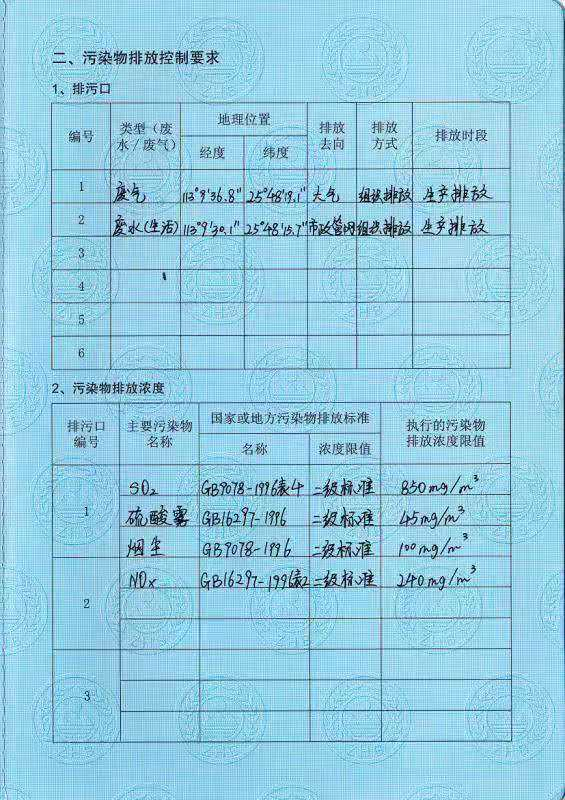 二、污染物排放控制要求
1、排污口
编号 类型（废水／废气） 地理位置 排放去向 排放方式 排放时段
经度 纬度
1 废气 113°9'36.8" 25°48'19.1" 大气 组织排放 生产排放
2 废水(生活) 113°9'30.1" 25°48'15.7" 市政管网 组织排放 生产排放
3
4
5
6
2、污染物排放浓度
排污口编号 主要污染物名称 国家或地方污染物排放标准 执行的污染物排放浓度限值
名称 浓度限值
1 SO₂ GB9078-1996表4 二级标准 850mg/m³
硫酸雾 GB16297-1996 二级标准 45mg/m³
烟尘 GB9078-1996 二级标准 100mg/m³
2 NOx GB16297-1996表2 二级标准 240mg/m³
3
ZHB